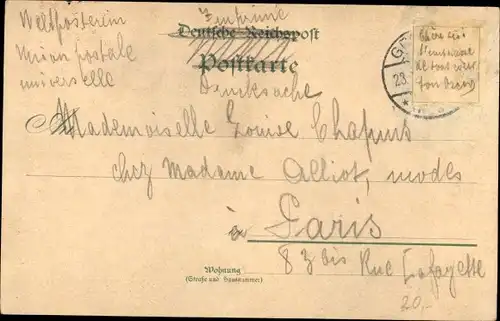 Weltpostverein
Union postale
universelle
Imprimé
Deutsche Reichspost
Postkarte
Drucksache
G
23
Mademoiselle Louise
chez Madame Alliot, modes
à Paris
83 bis Rue Lafayette
Wohnung
(Straße und Hausnummer)
20,-